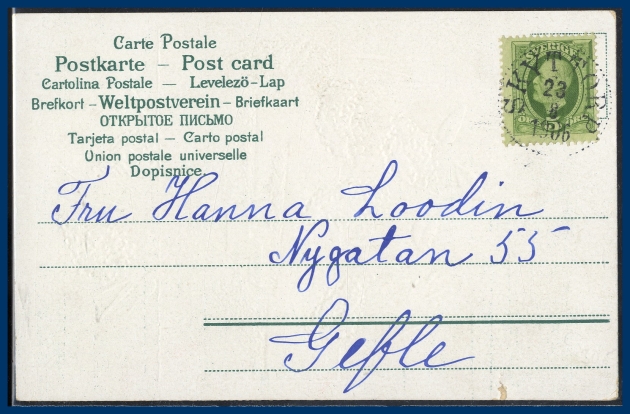 Carte Postale
Postkarte – Post card
Cartolina Postale – Levelező-Lap
Brefkort – Weltpostverein – Briefkaart
ОТКРЫТОЕ ПИСЬМО
Tarjeta postal – Carto postal
Union postale universelle
Dopisnice.
Fru Hanna Loodin
Nygatan 55
Gefle
SVERIGE
23
1906